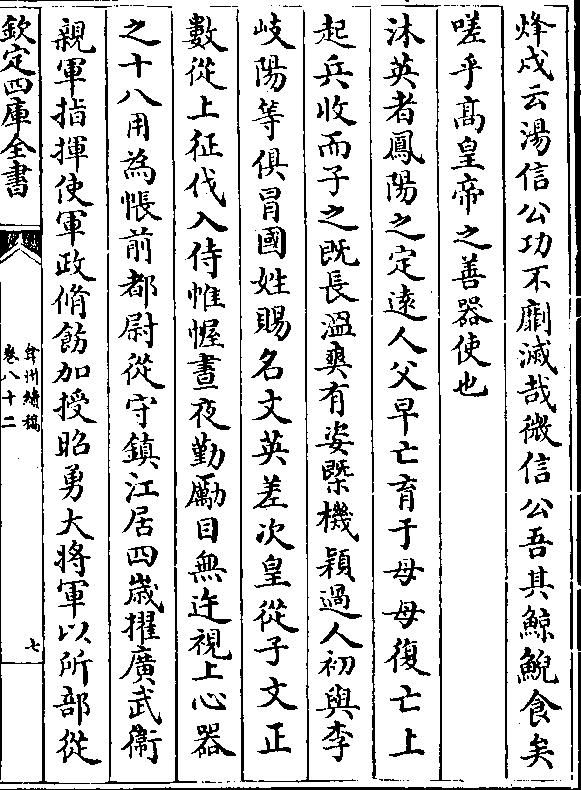 烽戍云湯信公功不劘滅哉微信公吾其鯨鯢食矣
嗟乎高皇帝之善器使也
沐英者鳳陽之定遠人父早亡育于母母復亡上
起兵收而子之既長溫爽有姿槩機穎過人初與李
岐陽等俱冒國姓賜名文英差次皇從子文正
數從上征伐入侍帷幄晝夜勤勵目無迕視上心器
之十八用為帳前都尉從守鎮江居四歲擢廣武衞
親軍指揮使軍政脩飭加授昭勇大將軍以所部從
欽定四庫全書
弇州續稿
卷八十二
七